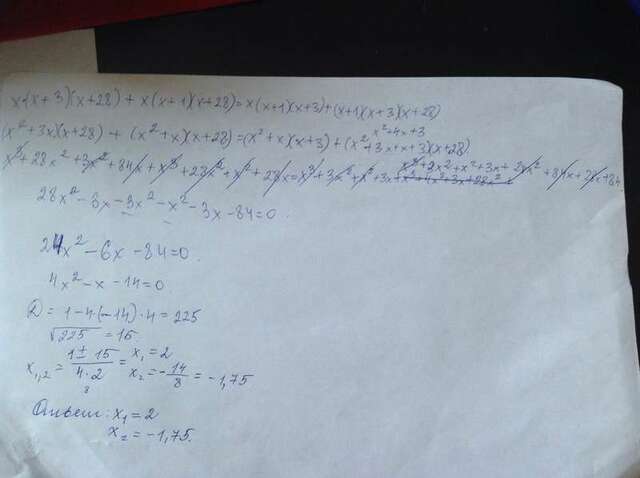 x(x+3)(x+28) + x(x+1)(x+28) = x(x+1)(x+3) + (x+1)(x+3)(x+28)
x²+4x+3
(x²+3x)(x+28) + (x²+x)(x+28) = (x²+x)(x+3) + (x²+3x+x+3)(x+28)
x³+28x²+3x²+84x+x³+28x²+x²+28x=x³+3x²+x²+3x+
28x²-6x-3x²-x²-3x-84=0.
24x²-6x-84=0.
4x²-x-14=0
D=1-4·(-14)·4=225
√225=15
x₁,₂ = (1±15)/(4·2) = x₁=2
8
x₂=-14/8=-1,75
Ответ: x₁=2
x₂=-1,75.